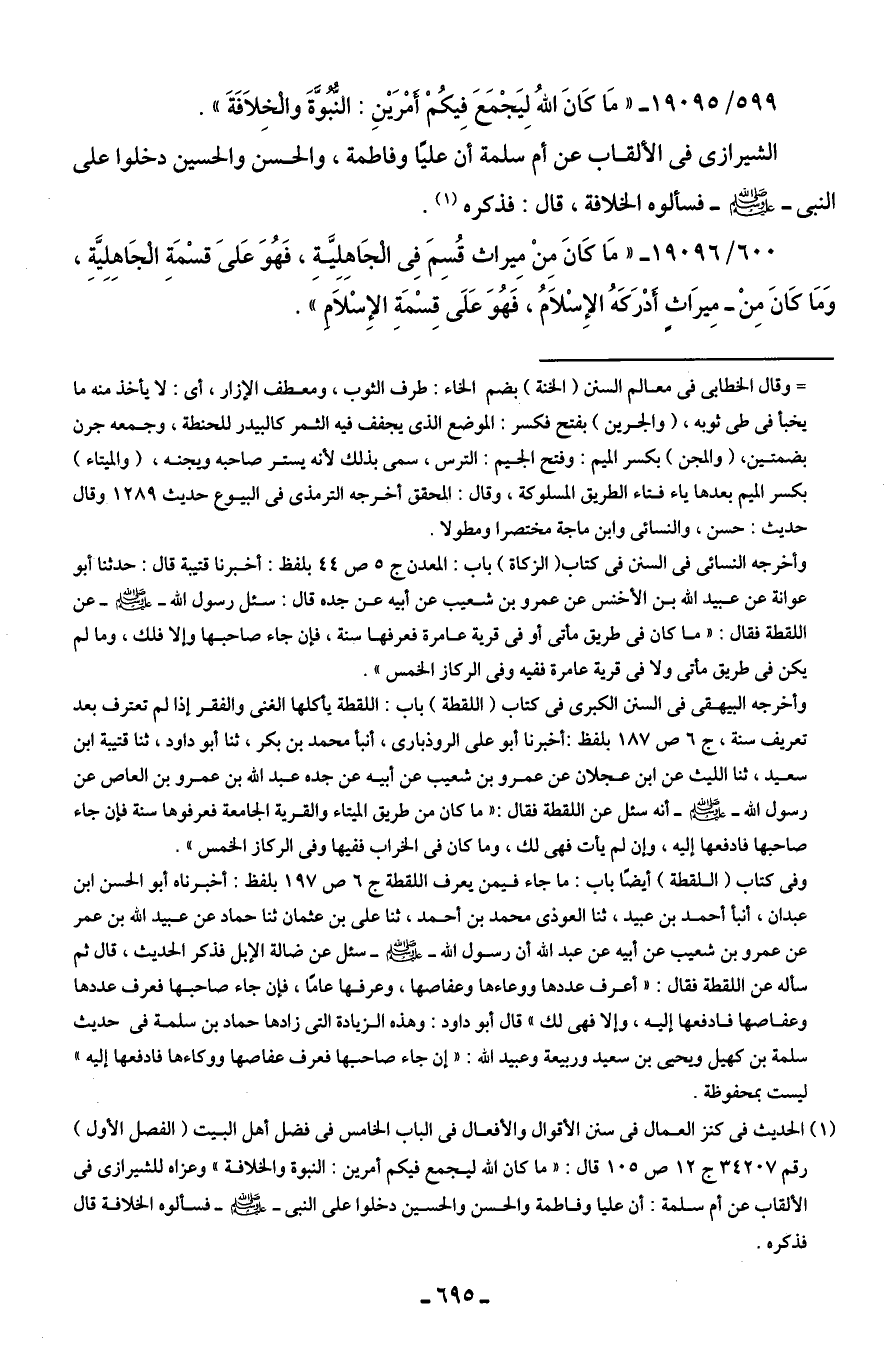 ٥٩٩/ ١٩٠٩٥ـ « مَا كَانَ اللهُ لِيَجْمَعَ فِيكُمْ أَمْرَيْنِ : النُّبُوَّةَ والْخِلاَفَةَ » .
الشيرازى فى الألقـاب عن أم سلمة أن عليًا وفاطمة ، والحـسن والحسين دخلوا على
النبى ـ ﷺ ـ فسألوه الخلافة ، قال : فذكره (١) .
٦٠٠/ ١٩٠٩٦ـ « مَا كَانَ مِنْ مِيراث قُسِمَ فِى الْجَاهِليَّـةِ ، فَهُوَ عَلَى قسْمَةِ الْجَاهِليَّةِ ،
وَمَا كَانَ مِنْ ـ مِيرَاثٍ أَدْرَكَهُ الإِسْلاَمُ ، فَهُوَ عَلَى قِسْمَةِ الإِسْلاَمِ » .
= وقال الخطابى فى معـالم السنن ( الخنة ) بضم الخاء : طرف الثوب ، ومعـطف الإزار ، أى : لا يأخذ منه ما
يخبأ فى طى ثوبه ، ( والجـرين ) بفتح فكسر : الموضع الذى يجفف فيه الثـمر كالبيدر للحنطة ، وجـمعه جرن
بضمتـين، ( والمجن ) بكسر الميم : وفتح الجـيم : الترس ، سمى بذلك لأنه يستـر صاحبه ويجنـه ، ( والميتاء )
بكسر الميم بعدها ياء فـتاء الطريق المسلوكة ، وقال : المحقق أخـرجه الترمذى فى البيـوع حديث ١٢٨٩ وقال
حديث : حسن ، والنسائى وابن ماجة مختصرا ومطولا .
وأخرجه النسائى فى السنن فى كتاب( الزكاة ) باب : المعدن ج ٥ ص ٤٤ بلفظ : أخـبرنا قتيبة قال : حدثنا أبو
عوانة عن عـبيد الله بـن الأخنس عن عمرو بن شـعيب عن أبيه عـن جده قال : سـئل رسول الله ـ ﷺ ـ عن
اللقطة فقال : « مـا كان فى طريق مأتى أو فى قرية عـامرة فعرفهـا سنة ، فإن جاء صاحبـها وإلا فلك ، وما لم
يكن فى طريق مأتى ولا فى قرية عامرة ففيه وفى الركاز الخمس » .
وأخرجه البيهـقى فى السنن الكبرى فى كتاب ( اللقطة ) باب : اللقطة يأكلها الغنى والفقـر إذا لم تعترف بعد
تعريف سنة ، ج ٦ ص ١٨٧ بلفظ :أخبرنا أبو على الروذبارى ، أنبأ محمد بن بكر ، ثنا أبو داود ، ثنا قتيبة ابن
سعيـد ، ثنا الليث عن ابن عـجلان عن عمـرو بن شعيب عن أبيـه عن جده عبـد الله بن عمـرو بن العاص عن
رسول الله ـ ﷺ ـ أنه سئل عن اللقطة فقال :« ما كان من طريق الميتاء والقـرية الجامعة فعرفوها سنة فإن جاء
صاحبها فادفعها إليه ، وإن لم يأت فهى لك ، وما كان فى الخراب ففيها وفى الركاز الخمس » .
وفى كتاب ( الـلقطة ) أيضًا باب : ما جاء فـيمن يعرف اللقطة ج ٦ ص ١٩٧ بلفظ : أخبـرناه أبو الحسن ابن
عبدان ، أنبأ أحمـد بن عبيد ، ثنا العوذى محمد بن أحـمد ، ثنا على بن عثمان ثنا حماد عن عـبيد الله بن عمر
عن عمرو بن شعيب عن أبيه عن عبد الله أن رسـول الله ـ ﷺ ـ سئل عن ضالة الإبل فذكر الحديث ، قال ثم
سأله عن اللقطة فقال : « أعـرف عددها ووعاءها وعفاصها ، وعرفـها عامًا ، فإن جاء صاحبـها فعرف عددها
وعفـاصها فـادفعها إليـه ، وإلا فهى لك » قال أبو داود : وهذه الـزيادة التى زادها حماد بن سلمـة فى حديث
سلمة بن كهيل ويحيى بن سعيد وربيعة وعبيد الله : « إن جاء صاحبـها فعرف عفاصها ووكاءها فادفعها إليه »
ليست بمحفوظة .
(١) الحديث فى كنز العـمال فى سنن الأقوال والأفعـال فى الباب الخامس فى فضل أهل البـيت ( الفصل الأول )
رقم ٣٤٢٠٧ ج ١٢ ص ١٠٥ قال : « ما كان الله ليـجمع فيكم أمرين : النبوة والخلافـة » وعزاه للشيرازى فى
الألقاب عن أم سـلمة : أن عليا وفـاطمة والحـسن والحسين دخلوا على النبى ـ ﷺ ـ فسـألوه الخلافـة قال
فذكره .
ـ ٦٩٥ ـ